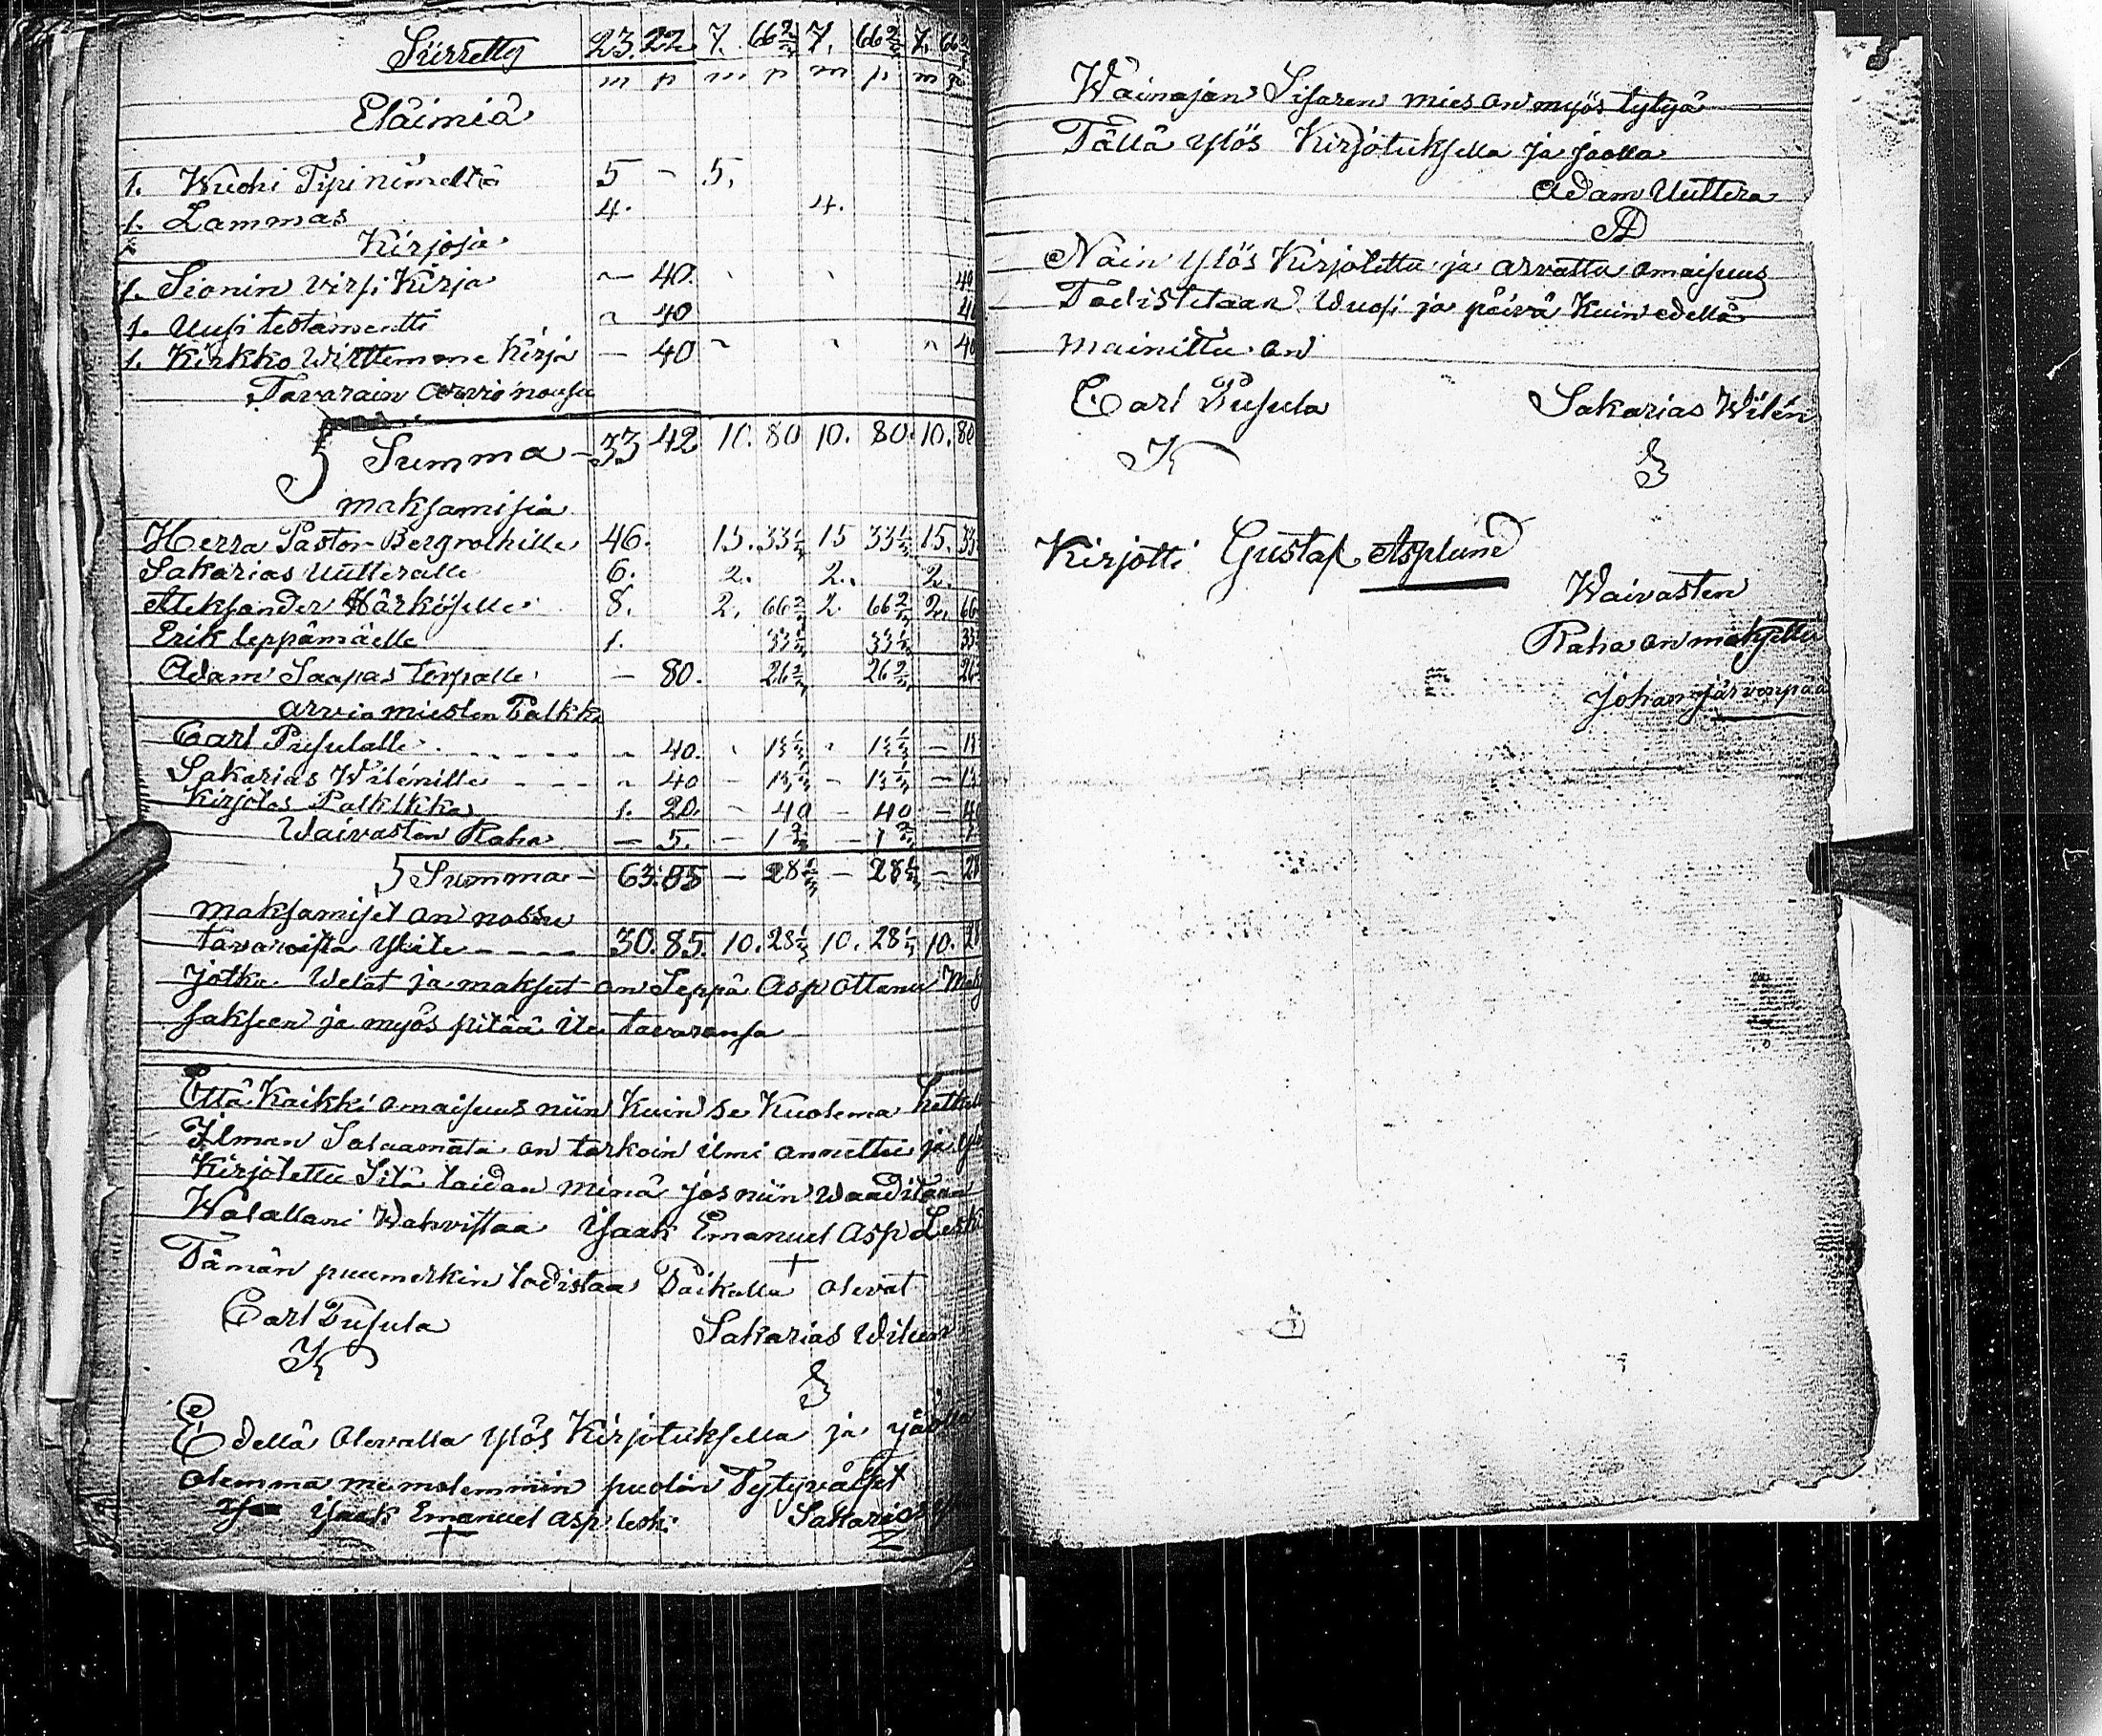 Siirretty 23. 22 7. 66 2/3 7. 66 2/3 7. 66
m p m p m p m p
Eläimiä
1. Wuohi Tipi nimeltä 5 - 5.
1. Lammas 4. 4.
Kirjoja
1. Sionin virsi Kirja - 40. 40
1. Uusi testamentti - 40 40
1. Kirkko Wirttemme Kirja - 40 40
Tavarain arvio nousu
Summa - 33 42 10. 80 10. 80. 10. 80
maksamisia
Herra Pastor Bergrothille 46. 15. 33 1/3 15 33 1/3 15. 33
Sakarias Uutteralle 6. 2. 2. 2.
Aleksander Härköselle 8. 2. 66 2/3 2. 66 2/3 2. 66
Erik leppämäelle 1. 33 1/3 33 1/3 33
Adam Saapas torpalle - 80. 26 2/3 26 2/3 26
arvio miesten Palkk
Carl Pusulalle - 40. - 13 1/3 - 13 1/3 - 13
Sakarias Wilénille - 40 - 13 1/3 - 13 1/3 - 13
Kirjotos Palkkka 1. 20. - 40 - 40 - 40
Waivasten Raha - 5. - 1 2/3 - 1 2/3 - 1
Summa - 63. 85 - 28 1/3 - 28 1/3 - 28
maksamiset on nossu
tavaroista ylite - - - - 30. 85. 10. 28 1/3 10. 28 1/3 10. 28
jotka Welat ja maksut on Leppä Asp ottanu Mak
saksen ja myös pitää itse tavaransa
Että Kaikki omaisuus niin Kuin se Kuolema hetkell
Ilman Salaamata on tarkoin ilmi annuttu ja ylös
Kirjotettu Sitä taidan minä jos niin Waaditaan
Walallani Wahvistaa Isaak Emanuel Asp Leski
Tämän puumerkin todistaa Paikalla olevat
Carl Pusula Sakarias Wilen
Edellä olevalla ylös Kirjotuksella ja jaolla
olemma me molemmin puolin Tytyväiset
Isaak Emanuel asp leski Sakarias
Wainajan Sisaren mies on myös tytyjä
Tällä ylös Kirjotuksella ja jaolla
Adam Uuttera
Näin ylös Kirjotettu ja arvattu omaisuus
Todistetaan Wuosi ja päivä Kuin edellä
mainittu on
Carl Pusula Sakarias Wilén
Kirjotti Gustaf Asplund
Waivasten
Raha on maksettu
Johan Järvenpää